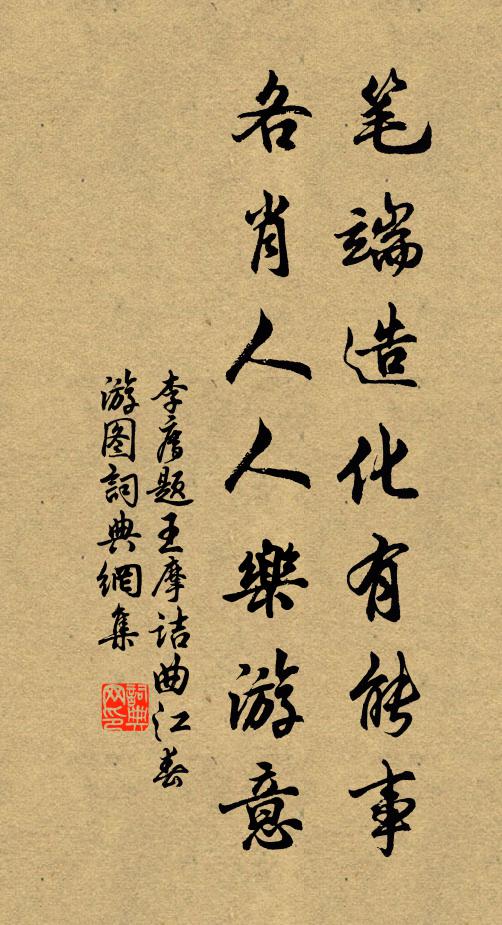 笔端造化有能事
各肖人人樂游意
李廌题王摩诘曲江春
游图詞典網集
詞典网印